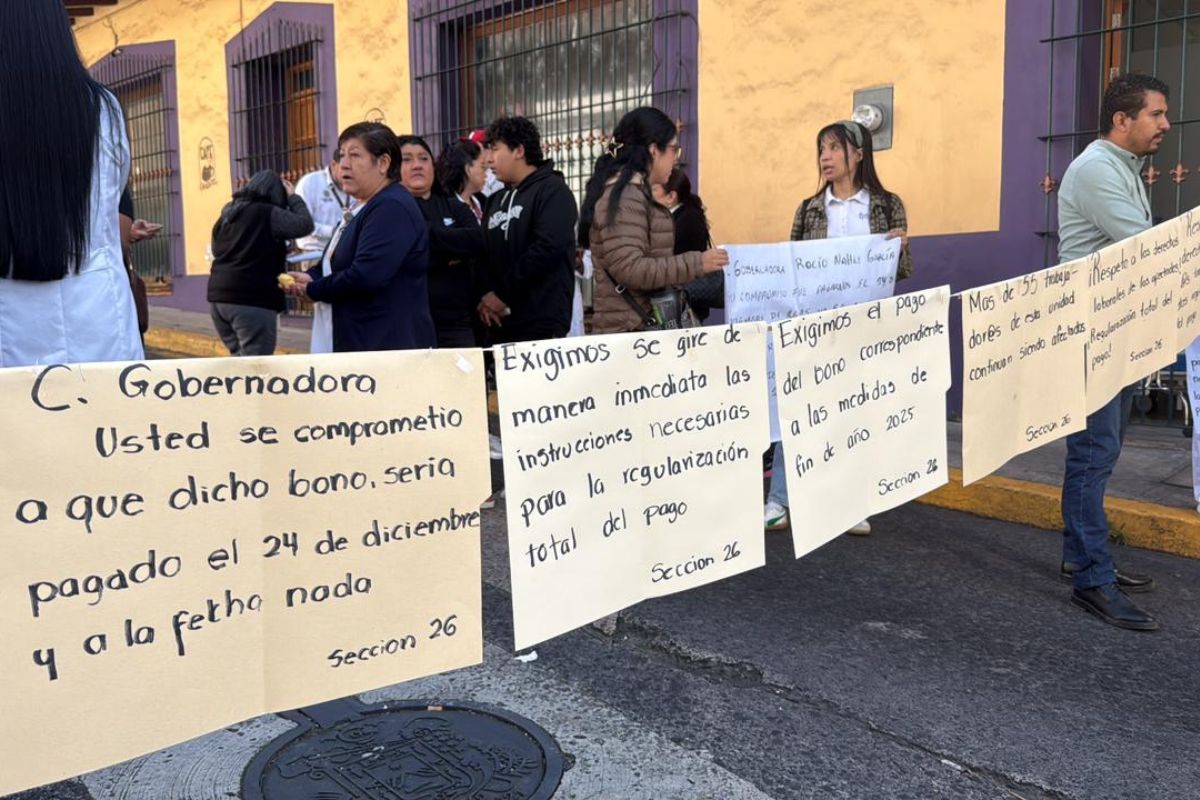 C. Gobernadora
Usted se comprometio
a que dicho bono, seria
pagado el 24 de diciembre
y a la fetha nada
Seccion 26
Exigimos se gire de
manera inmediata las
instrucciones necesarias
para la regularización
total del pago
Seccion 26
Gobernadora Rocío Nahle García
compromiso
Exigimos el pago
del bono correspondiente
a las medidas de
fin de año 2025
Seccion 26
Mas de 55 trabaja-
dores de esta unidad
continuan siendo afectados
Seccion 26
¡Respeto a los derechos
laborales de los afectados,
Regularización total del
pago!
Seccion 26